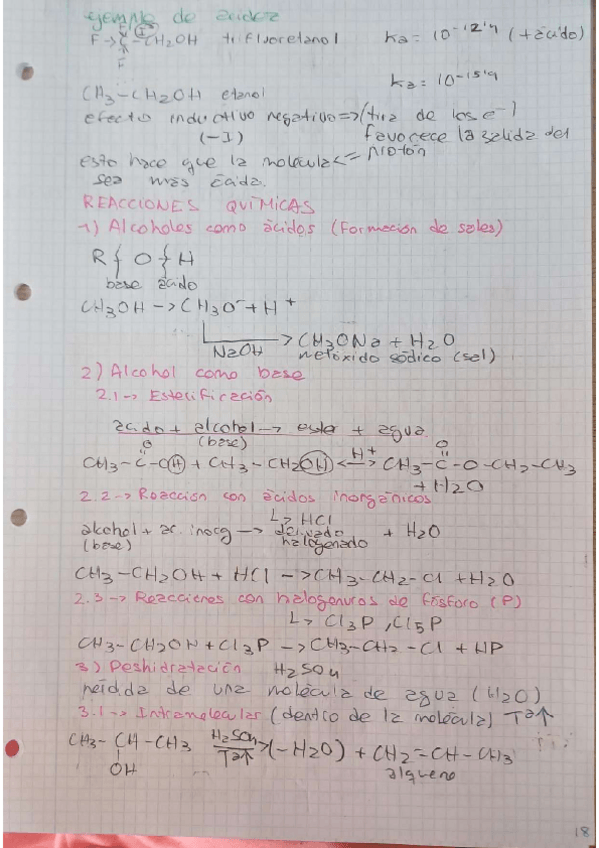 ejemplo de acidez
F
F → C → CH2OH trifluoretanol Ka = 10^-12'4 (+ácido)
F
Ka = 10^-15'9
CH3-CH2OH etanol
efecto inductivo negativo => (tira de los e-)
(-I) favorece la salida del
esto hace que la molécula <= protón
sea más ácida.
REACCIONES QUÍMICAS
1) Alcoholes como ácidos (Formación de sales)
R { O { H
base ácido
CH3OH -> CH3O- + H+
NaOH -> CH3ONa + H2O
metóxido sódico (sal)
2) Alcohol como base
2.1-> Esterificación
ácido + alcohol -> ester + agua
(base)
O O
CH3-C-OH + CH3-CH2OH <-H+-> CH3-C-O-CH2-CH3
+ H2O
2.2-> Reacción con ácidos inorgánicos
L> HCl
alcohol + ac. inorg -> derivado + H2O
(base) halogenado
CH3-CH2OH + HCl -> CH3-CH2-Cl + H2O
2.3-> Reacciones con halogenuros de fósforo (P)
L> Cl3P, Cl5P
CH3-CH2OH + Cl3P -> CH3-CH2-Cl + HP
3) Deshidratación H2SO4
pérdida de una molécula de agua (H2O)
3.1-> Intramolecular (dentro de la molécula) Tª↑
CH3-CH-CH3 H2SO4 Tª↑ -> (-H2O) + CH2=CH-CH3
OH alqueno
18